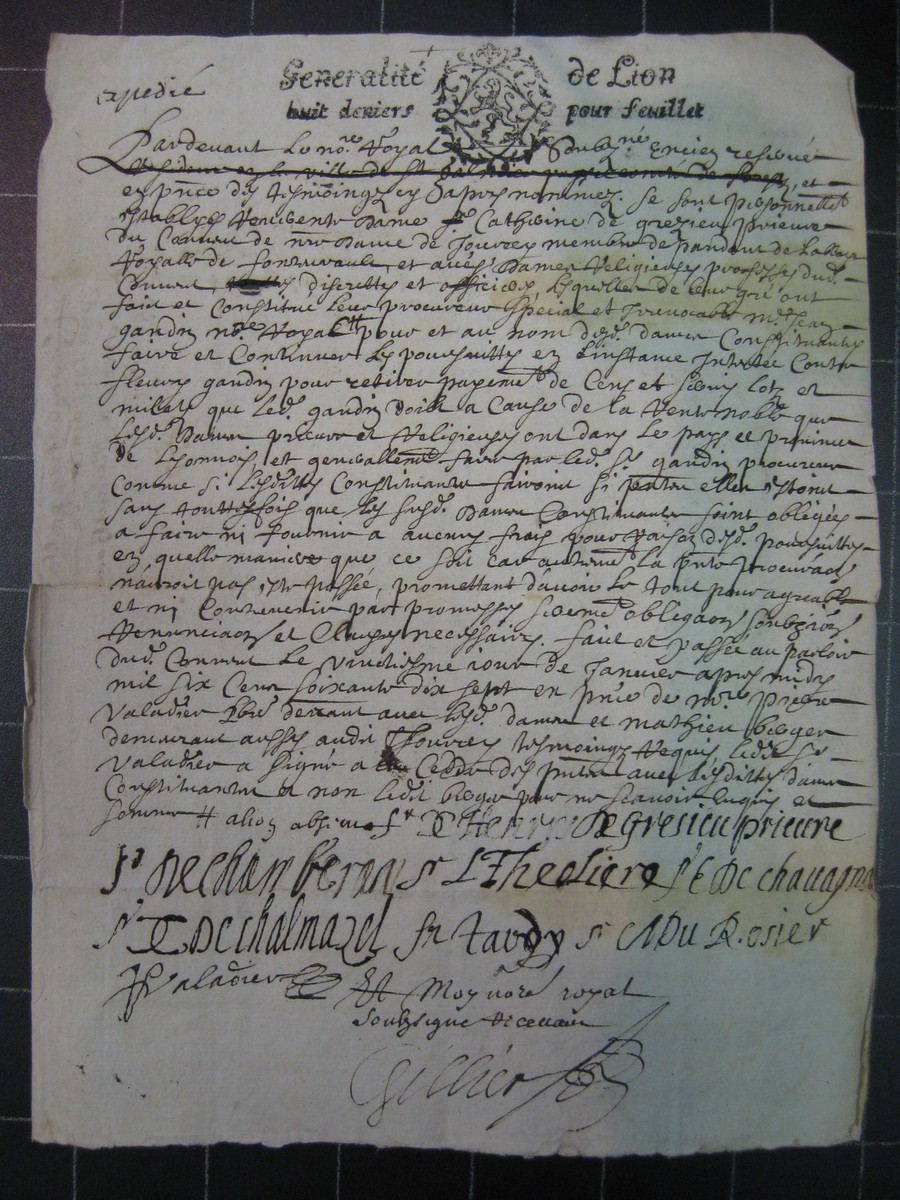 expedié
Generalité de Lion
huit deniers pour feuillet
Pardevant le no.re Royal Soubz.né
et
en p̃nce des tesmoings cy apres nommez. se sont personnellem.t
establyes Reverente Dame Catherine de grezieu prieure
du Couvent de n̄re Dame de Jourcey membre dependant de Labbaye
Royalle de fontevrault, et avec Dames Religieuses professes dud.
Couvent, discrettes et officieres lesquelles de leur gré ont
fait et Constitué leur procureur special et Irrevocable M.e Jean
gandin no.re Royal pour et au nom desd. dames Constituantes
faire et Continuer les poursuittes en l'instance Intentée Contre
fleury gandin pour retirer payem.t de Cens et servis lotz et
milods que led. gandin doibt a Cause de la Rente noble que
lesd. Dames prieure et Religieuses ont dans le pays et province
de Lyonnois, et gen̄rallem.t faire par led. S.r gandin procureur
comme si lesdittes Constituantes fairoient si p̃ntes elles estoint
sans touttesfois que les susd. Dames Constituantes soint obligées
a faire ni fournir a aucuns frais pour raison desd. poursuittes
en quelle maniere que ce soit car autrem.t la p̃nte procura͠on
n'auroit pas esté passée, promettant d'avoir le tout pour agreable
et ni Contrevenir par promesses serm.t obliga͠on
Renoncia͠on et Clauses necessaires. fait et passé au parloir
dud. Couvent le vinctiesme jour de Janvier apres midy
mil six Cens soixante dix sept en p̃nce de m.re pierre
Valadier p̃bre demeurant avec lesd. dames et mathieu
demeurant aussy audit Jourcey tesmoings Requis ledit S.r
Valadier a signé a la Cedde des p̃ntes avec lesdittes dames
Constituantes et non ledit pour ne scavoir enquis et
sommé S.r C De gresieu prieure
S.r De chamberan S.r L Theoliere S.r E De chavagn
S.r De chalmazel S.r tardy S.r C Du Rosier
Valadier Et Moy noré royal
soubsigne recevant
Gillier